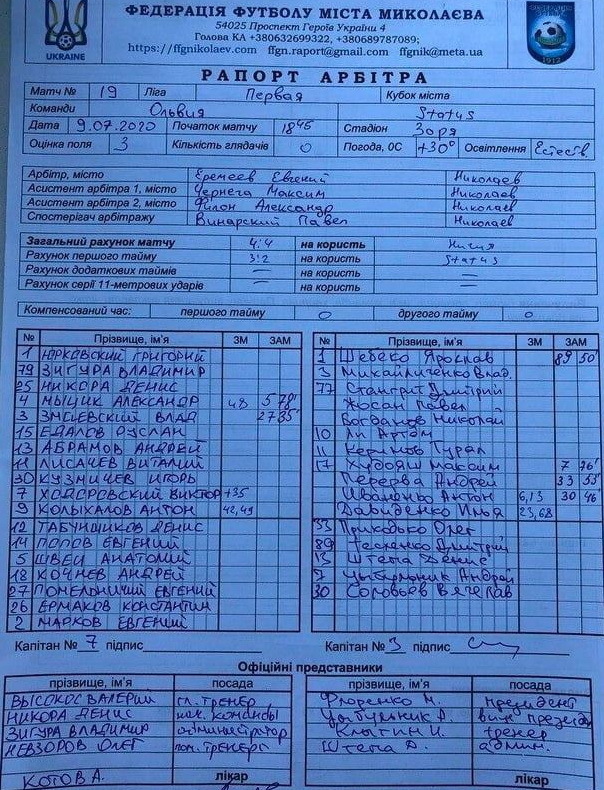 ФЕДЕРАЦІЯ ФУТБОЛУ МІСТА МИКОЛАЄВА
54025 Проспект Героїв України 4
Голова КА +380632699322, +380689787089;
https://ffgnikolaev.com ffgn.raport@gmail.com ffgnik@meta.ua
UKRAINE
РАПОРТ АРБІТРА
Матч № 19 Ліга Первая Кубок міста
Команди Ольвия Status
Дата 9.07.2020 Початок матчу 18 45 Стадіон Зоря
Оцінка поля 3 Кількість глядачів 0 Погода, 0С +30° Освітлення Естеств.
Арбітр, місто Еремеев Евгений Николаев
Асистент арбітра 1, місто Чернега Максим Николаев
Асистент арбітра 2, місто Филон Александр Николаев
Спостерігач арбітражу Винарский Павел Николаев
Загальний рахунок матчу 4:4 на користь Ничия
Рахунок першого тайму 3:2 на користь Status
Рахунок додаткових таймів — на користь —
Рахунок серії 11-метрових ударів — на користь —
Компенсований час: першого тайму 0 другого тайму 0
№ Прізвище, ім'я ЗМ ЗАМ № Прізвище, ім'я ЗМ ЗАМ
1 ЮРКОВСКИЙ ГРИГОРИЙ 1 Шебеко Ярослав 89 50'
79 ЗИГУРА ВЛАДИМИР 3 Михайличенко Влад.
25 НИКОРА ДЕНИС 77 Стангрит Дмитрий
4 МЫЦИК АЛЕКСАНДР 48 5 78' Жосан Павел
3 ЗМИЕВСКИЙ ВЛАД 27 85' Богданов Николай
15 ЕДАЛОВ РУСЛАН 10 Ли Артём
13 АБРАМОВ АНДРЕЙ 11 Керимов
11 ЛИСАЧЕВ ВИТАЛИЙ 17 Худояш Максим 7 76'
30 КУЗМИЧЕВ ИГОРЬ Перерва Андрей 33 53'
7 ХОДОРОВСКИЙ ВИКТОР +35 Иваненко Антон 6,13 30 46
9 КОЛЫХАЛОВ АНТОН 42,49 Давиденко Илья 23,68
12 ТАБУНЩИКОВ ДЕНИС 33 Приходько Олег
14 ПОПОВ ЕВГЕНИЙ 89 Тесленко Дмитрий
5 ШВЕЦ АНАТОЛИЙ 15 Штепа Денис
18 КОЧНЕВ АНДРЕЙ 7 Цыбульник Андрей
27 ПОМЕЛЬНИЧИЙ ЕВГЕНИЙ 30 Соловьев Вячеслав
26 ЕРМАКОВ КОНСТАНТИН
2 МАРКОВ ЕВГЕНИЙ
Капітан № 7 підпис Капітан № 3 підпис
Офіційні представники
прізвище, ім'я посада прізвище, ім'я посада
ВЫСОКОС ВАЛЕРИЙ гл. тренер Флоренко М. президент
НИКОРА ДЕНИС нач. команды Цыбульник А. виц президе
ЗИГУРА ВЛАДИМИР администратор тренер
НЕВЗОРОВ ОЛЕГ пом. тренера Штепа Д. админ.
КОТОВА А. лікар лікар